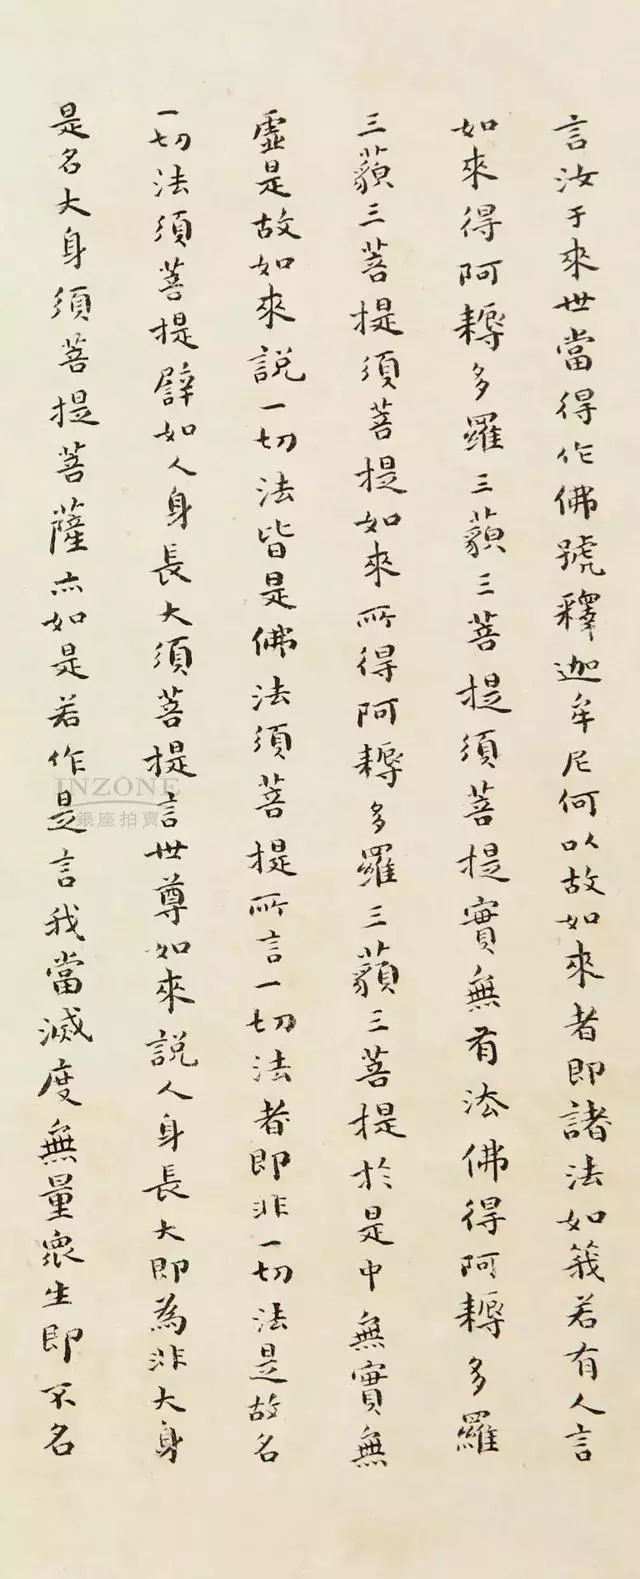 言汝于來世當得作佛號釋迦牟尼何以故如來者即諸法如義若有人言
如來得阿耨多羅三藐三菩提須菩提實無有法佛得阿耨多羅
三藐三菩提須菩提如來所得阿耨多羅三藐三菩提於是中無實無
虛是故如來說一切法皆是佛法須菩提所言一切法者即非一切法是故名
一切法須菩提譬如人身長大須菩提言世尊如來說人身長大即為非大身
是名大身須菩提菩薩亦如是若作是言我當滅度無量眾生即不名
INZONE
銀座拍賣